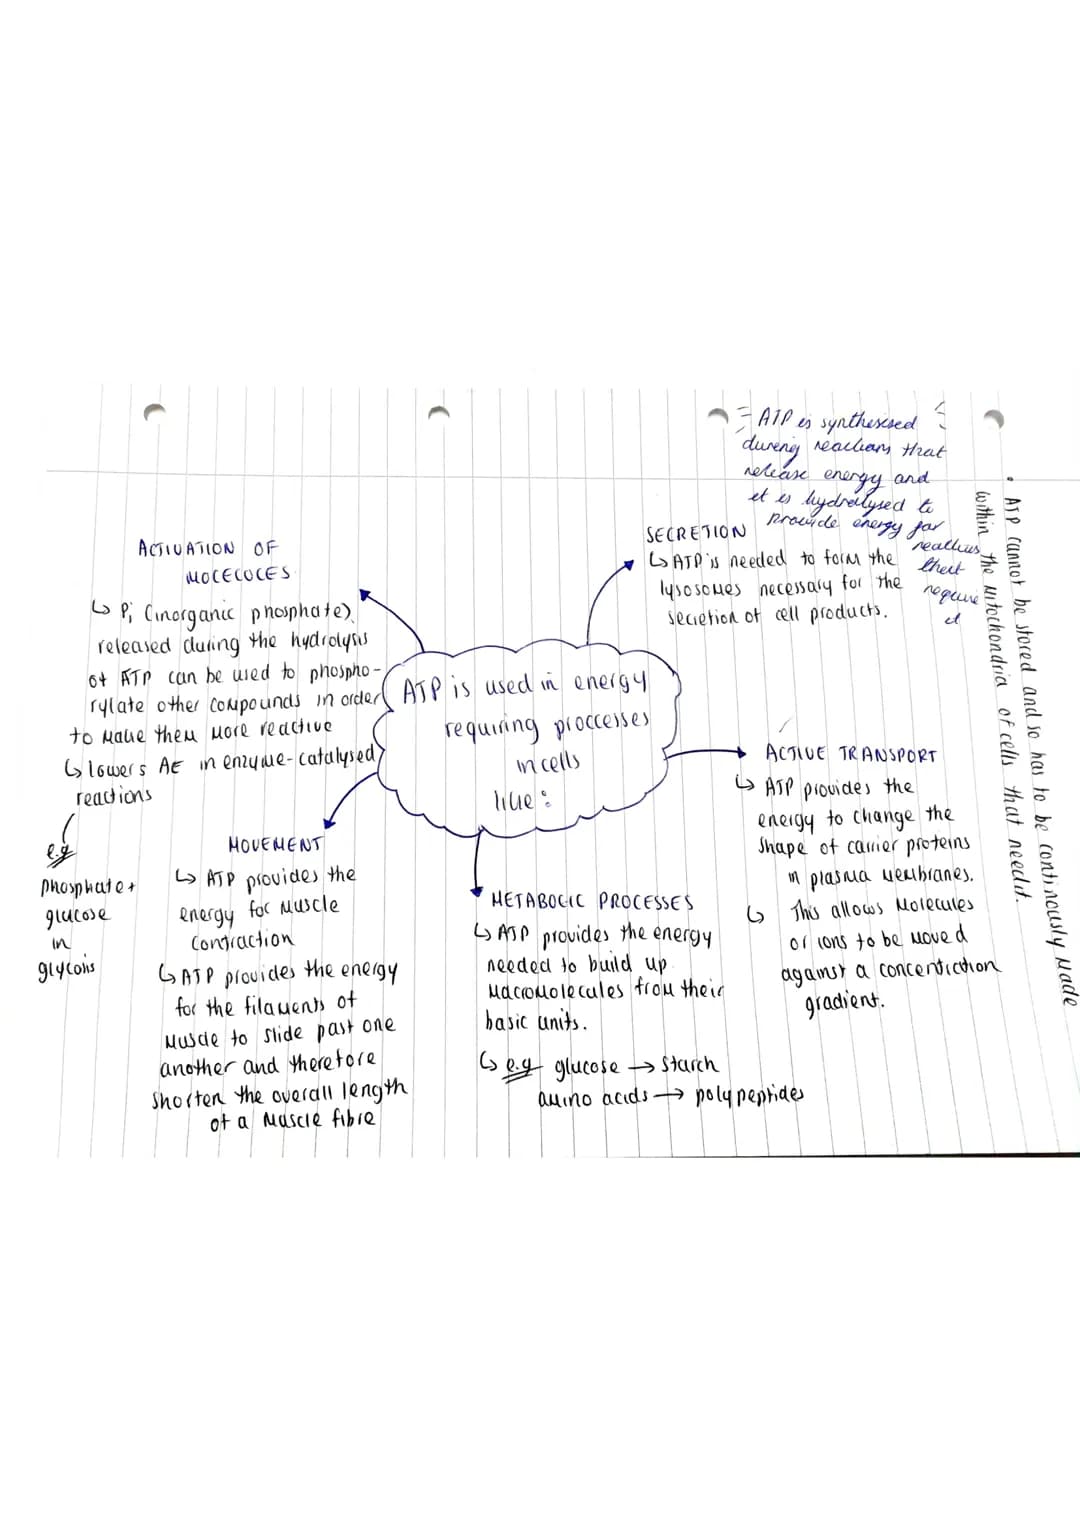 ATP is synthesised
during reactions that
release energy and
it is hydrolysed to
provide energy for
reactions
that
require
it
• ATP cannot be stored and so has to be continously made
within the mitochondria of cells that need it.
ACTIVATION OF
MOLECULES
↳ Pi (inorganic phosphate)
released during the hydrolysis
of ATP can be used to phospho-
rylate other compounds in order
to make them more reactive
↳ lowers AE in enzyme-catalysed
reactions
e.g
phosphate +
glucose
in
glycolis
SECRETION
↳ ATP is needed to form the
lysosomes necessary for the
secretion of cell products.
ATP is used in energy
requiring proccesses
in cells
like:
ACTIVE TRANSPORT
↳ ATP provides the
energy to change the
shape of carrier proteins
in plasma membranes.
↳ This allows molecules
or ions to be moved
against a concentration
gradient.
MOVEMENT
↳ ATP provides the
energy for muscle
contraction
↳ ATP provides the energy
for the filaments of
muscle to slide past one
another and therefore
shorten the overall length
of a muscle fibre
METABOLIC PROCESSES
↳ ATP provides the energy
needed to build up
macromolecules from their
basic units.
↳ e.g glucose → starch
amino acids → polypeptides